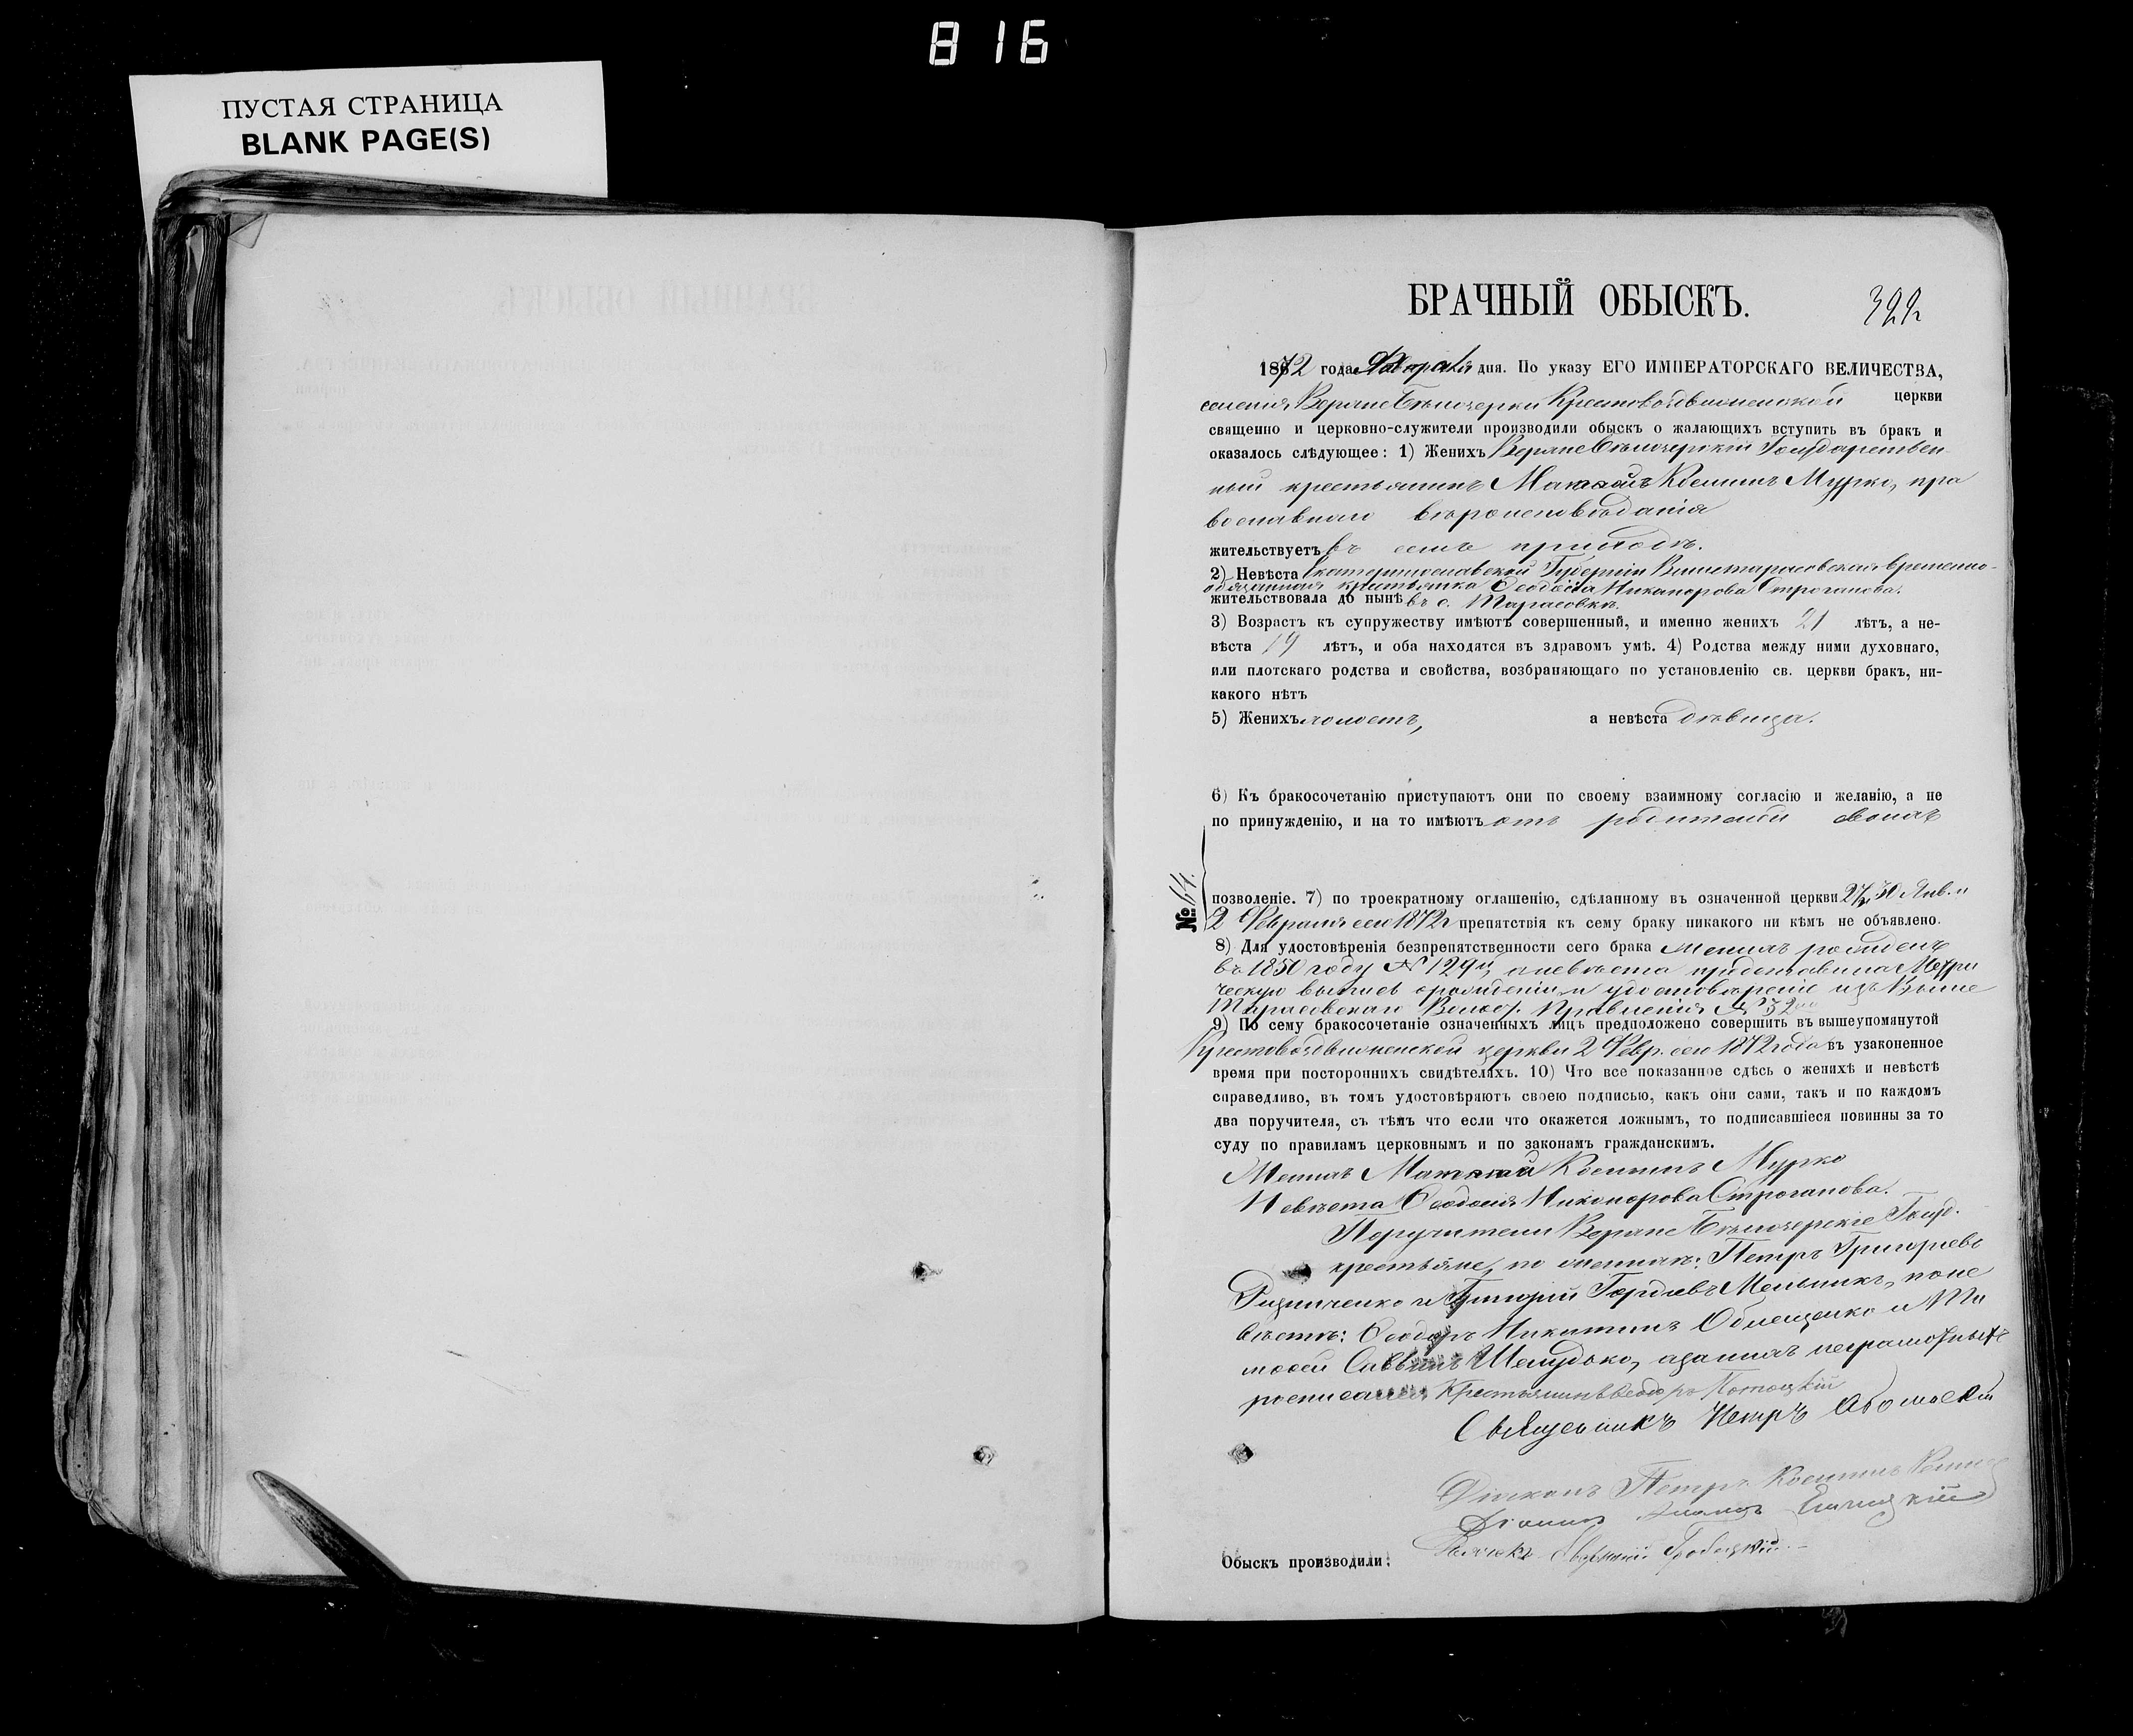 816
ПУСТАЯ СТРАНИЦА
BLANK PAGE(S)
БРАЧНЫЙ ОБЫСКЪ.
1872 года Февраля дня. По указу ЕГО ИМПЕРАТОРСКАГО ВЕЛИЧЕСТВА,
селенія Верхне Бѣлозерки Крестовоздвиженской церкви
священно и церковно-служители производили обыскъ о жалающихъ вступить въ бракъ и
оказалось слѣдующее: 1) Женихъ Верхне Бѣлозерскій Государствен-
ный крестьянинъ Козминъ Мурко, пра
вославнаго вѣроисповѣданія
жительствуетъ въ семъ приходѣ.
2) Невѣста Екатеринославской Губерніи Вишетарасовская временно-
обязанная крестьянка Ѳеодосія Никанорова Строганова.
жительствовала до нынѣ въ с. Тарасовкѣ.
3) Возрастъ къ супружеству имѣютъ совершенный, и именно женихъ 21 лѣтъ, а не-
вѣста 19 лѣтъ, и оба находятся въ здравомъ умѣ. 4) Родства между ними духовнаго,
или плотскаго родства и свойства, возбраняющаго по установленію св. церкви бракъ, ни-
какого нѣтъ
5) Женихъ холостъ, а невѣста дѣвица.
6) Къ бракосочетанію приступаютъ они по своему взаимному согласію и желанію, а не
по принужденію, и на то имѣютъ отъ родителей своихъ
№ 14.
позволеніе. 7) по троекратному оглашенію, сдѣланному въ означенной церкви 27, 30 Янв. и
2 Февраля сего 1872 г препятствія къ сему браку никакого ни кѣмъ не объявлено.
8) Для удостовѣренія безпрепятственности сего брака Женихъ рожденъ
въ 1850 году № 129й, а невѣста представила Метри
ческую выпись о рожденіи и удостовѣреніе изъ Выше
Тарасовскаго Волост. Правленія № 32
9) По сему бракосочетаніе означенныхъ лицъ предположено совершить въ вышеупомянутой
Крестовоздвиженской церкви 2 Февр. сего 1872 года въ узаконенное
время при постороннихъ свидѣтеляхъ. 10) Что все показанное сдѣсь о женихѣ и невѣстѣ
справедливо, въ томъ удостовѣряютъ своею подписью, какъ они сами, такъ и по каждомъ
два поручителя, съ тѣмъ что если что окажется ложнымъ, то подписавшіеся повинны за то
суду по правиламъ церковнымъ и по законамъ гражданскимъ.
Женихъ Козминъ Мурко
Невѣста Ѳеодосія Никонорова Строганова.
Поручители Верхне Бѣлозерскіе Госуд.
крестьяне, по женихѣ: Петръ Григорьевъ
и Григорій Гордіевъ Мельникъ, по не
вѣстѣ: Ѳеодоръ Никитинъ и Ти
моѳей Саввинъ Шелудько, а за нихъ неграмотныхъ
росписался Крестьянинъ Ѳеодоръ Потоцкій
Священникъ Петръ
Діаконъ Петръ
Обыскъ производили: